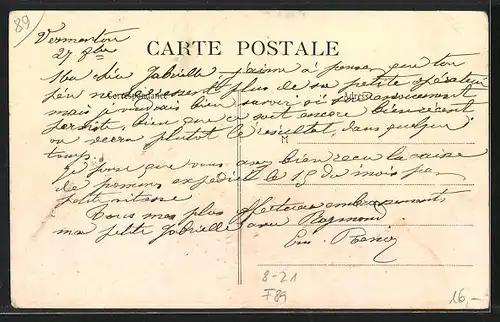 89
Vermenton
27 8bre
CARTE POSTALE
Correspondance
Ma chère Gabrielle, j'aime à penser que ton
père ne se ressent plus de sa petite opération
mais je voudrais bien savoir si
persiste, bien que ce soit encore bien récent
on verra plutôt le résultat, dans quelque
temps.
M
Je pense que vous avez bien reçu la caisse
de pommes expédiée le 15 du mois par
petite vitesse
Tous mes plus affectueux embrassements
ma petite Gabrielle avec Raymond
8-21
F89
16,-